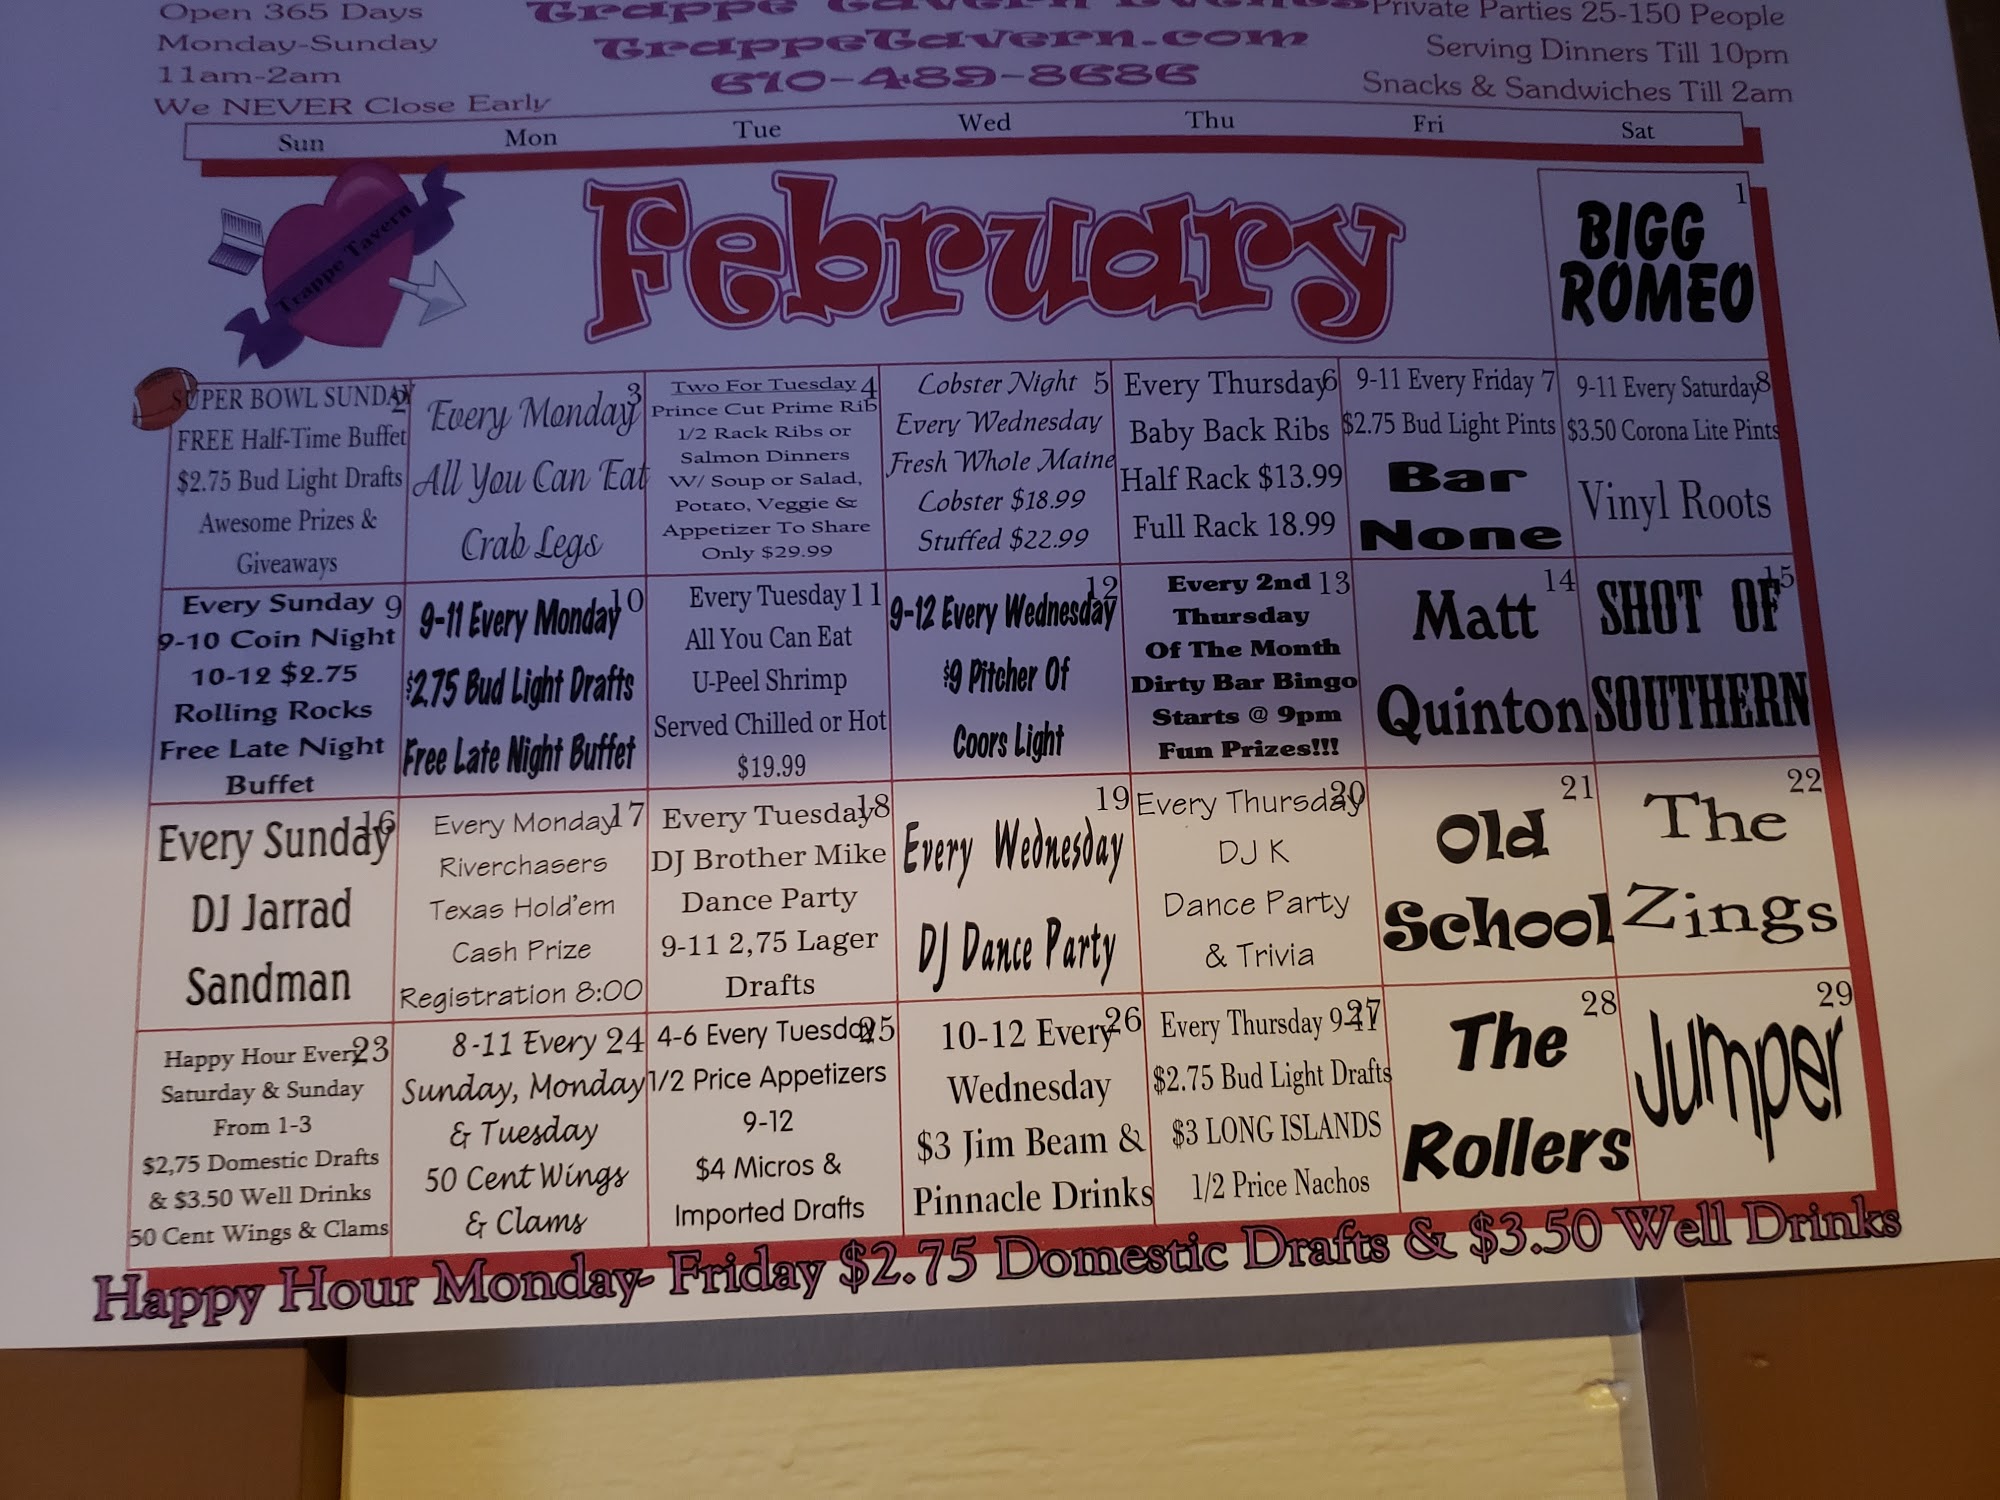 Open 365 Days
Monday-Sunday
11am-2am
We NEVER Close Early
Trappe Tavern Events
TrappeTavern.com
610-489-8686
Private Parties 25-150 People
Serving Dinners Till 10pm
Snacks & Sandwiches Till 2am
Sun Mon Tue Wed Thu Fri Sat
Trappe Tavern
February
1
BIGG
ROMEO
SUPER BOWL SUNDAY 2
FREE Half-Time Buffet
$2.75 Bud Light Drafts
Awesome Prizes &
Giveaways
3
Every Monday
All You Can Eat
Crab Legs
Two For Tuesday 4
Prince Cut Prime Rib
1/2 Rack Ribs or
Salmon Dinners
W/ Soup or Salad,
Potato, Veggie &
Appetizer To Share
Only $29.99
Lobster Night 5
Every Wednesday
Fresh Whole Maine
Lobster $18.99
Stuffed $22.99
Every Thursday 6
Baby Back Ribs
Half Rack $13.99
Full Rack 18.99
9-11 Every Friday 7
$2.75 Bud Light Pints
Bar
None
9-11 Every Saturday 8
$3.50 Corona Lite Pints
Vinyl Roots
Every Sunday 9
9-10 Coin Night
10-12 $2.75
Rolling Rocks
Free Late Night
Buffet
9-11 Every Monday 10
$2.75 Bud Light Drafts
Free Late Night Buffet
Every Tuesday 11
All You Can Eat
U-Peel Shrimp
Served Chilled or Hot
$19.99
12
9-12 Every Wednesday
$9 Pitcher Of
Coors Light
Every 2nd 13
Thursday
Of The Month
Dirty Bar Bingo
Starts @ 9pm
Fun Prizes!!!
14
Matt
Quinton
15
SHOT OF
SOUTHERN
16
Every Sunday
DJ Jarrad
Sandman
Every Monday 17
Riverchasers
Texas Hold'em
Cash Prize
Registration 8:00
Every Tuesday 18
DJ Brother Mike
Dance Party
9-11 2,75 Lager
Drafts
19
Every Wednesday
DJ Dance Party
Every Thursday 20
DJ K
Dance Party
& Trivia
21
Old
School
22
The
Zings
Happy Hour Every 23
Saturday & Sunday
From 1-3
$2,75 Domestic Drafts
& $3.50 Well Drinks
50 Cent Wings & Clams
8-11 Every 24
Sunday, Monday
& Tuesday
50 Cent Wings
& Clams
4-6 Every Tuesday 25
1/2 Price Appetizers
9-12
$4 Micros &
Imported Drafts
10-12 Every 26
Wednesday
$3 Jim Beam &
Pinnacle Drinks
Every Thursday 9-11 27
$2.75 Bud Light Drafts
$3 LONG ISLANDS
1/2 Price Nachos
28
The
Rollers
29
Jumper
Happy Hour Monday- Friday $2.75 Domestic Drafts & $3.50 Well Drinks